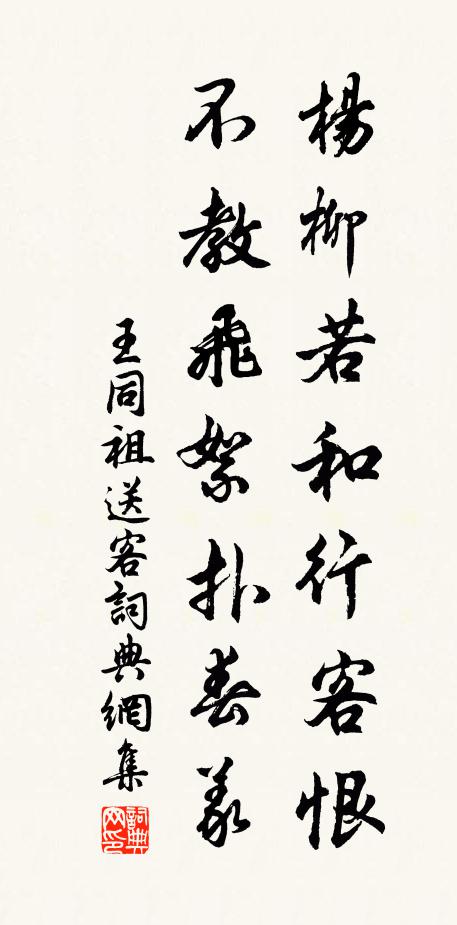 楊柳若和行客恨
不教飛絮扑春
王同祖送客詞典網集
詞典网印